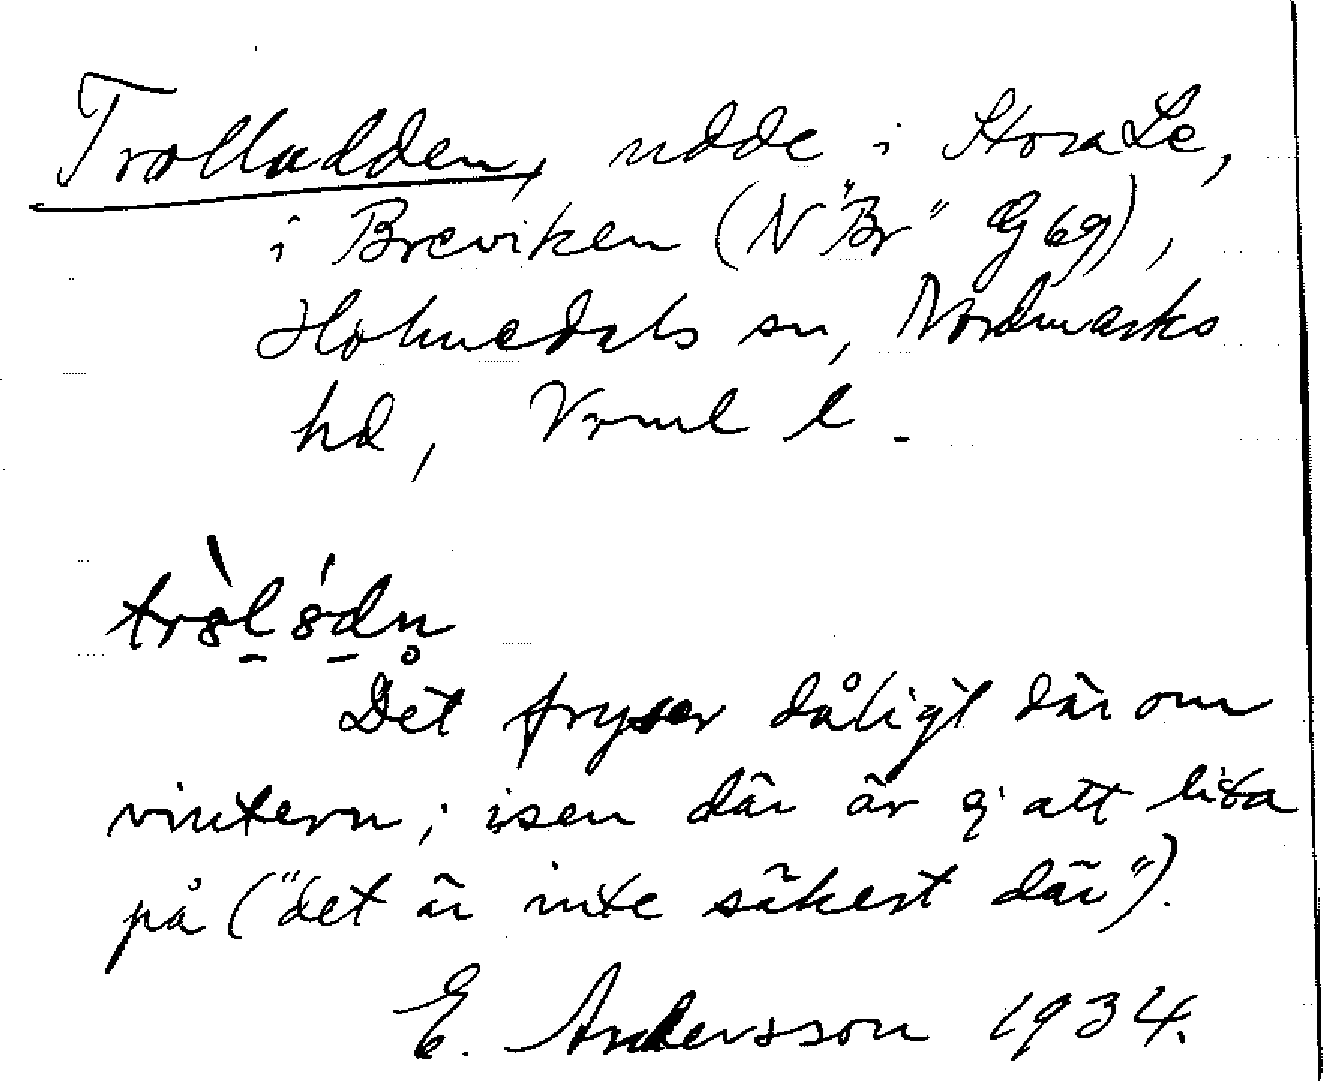 Trolludden, udde i Stora Le,
i Breviken (N "Br" G 69),
Holmedals sn, Nordmarks
hd, Vrml l.
Det fryser dåligt där om
vintern; isen där är ej att lita
på ("det är inte säkert där").
E. Andersson 1934.